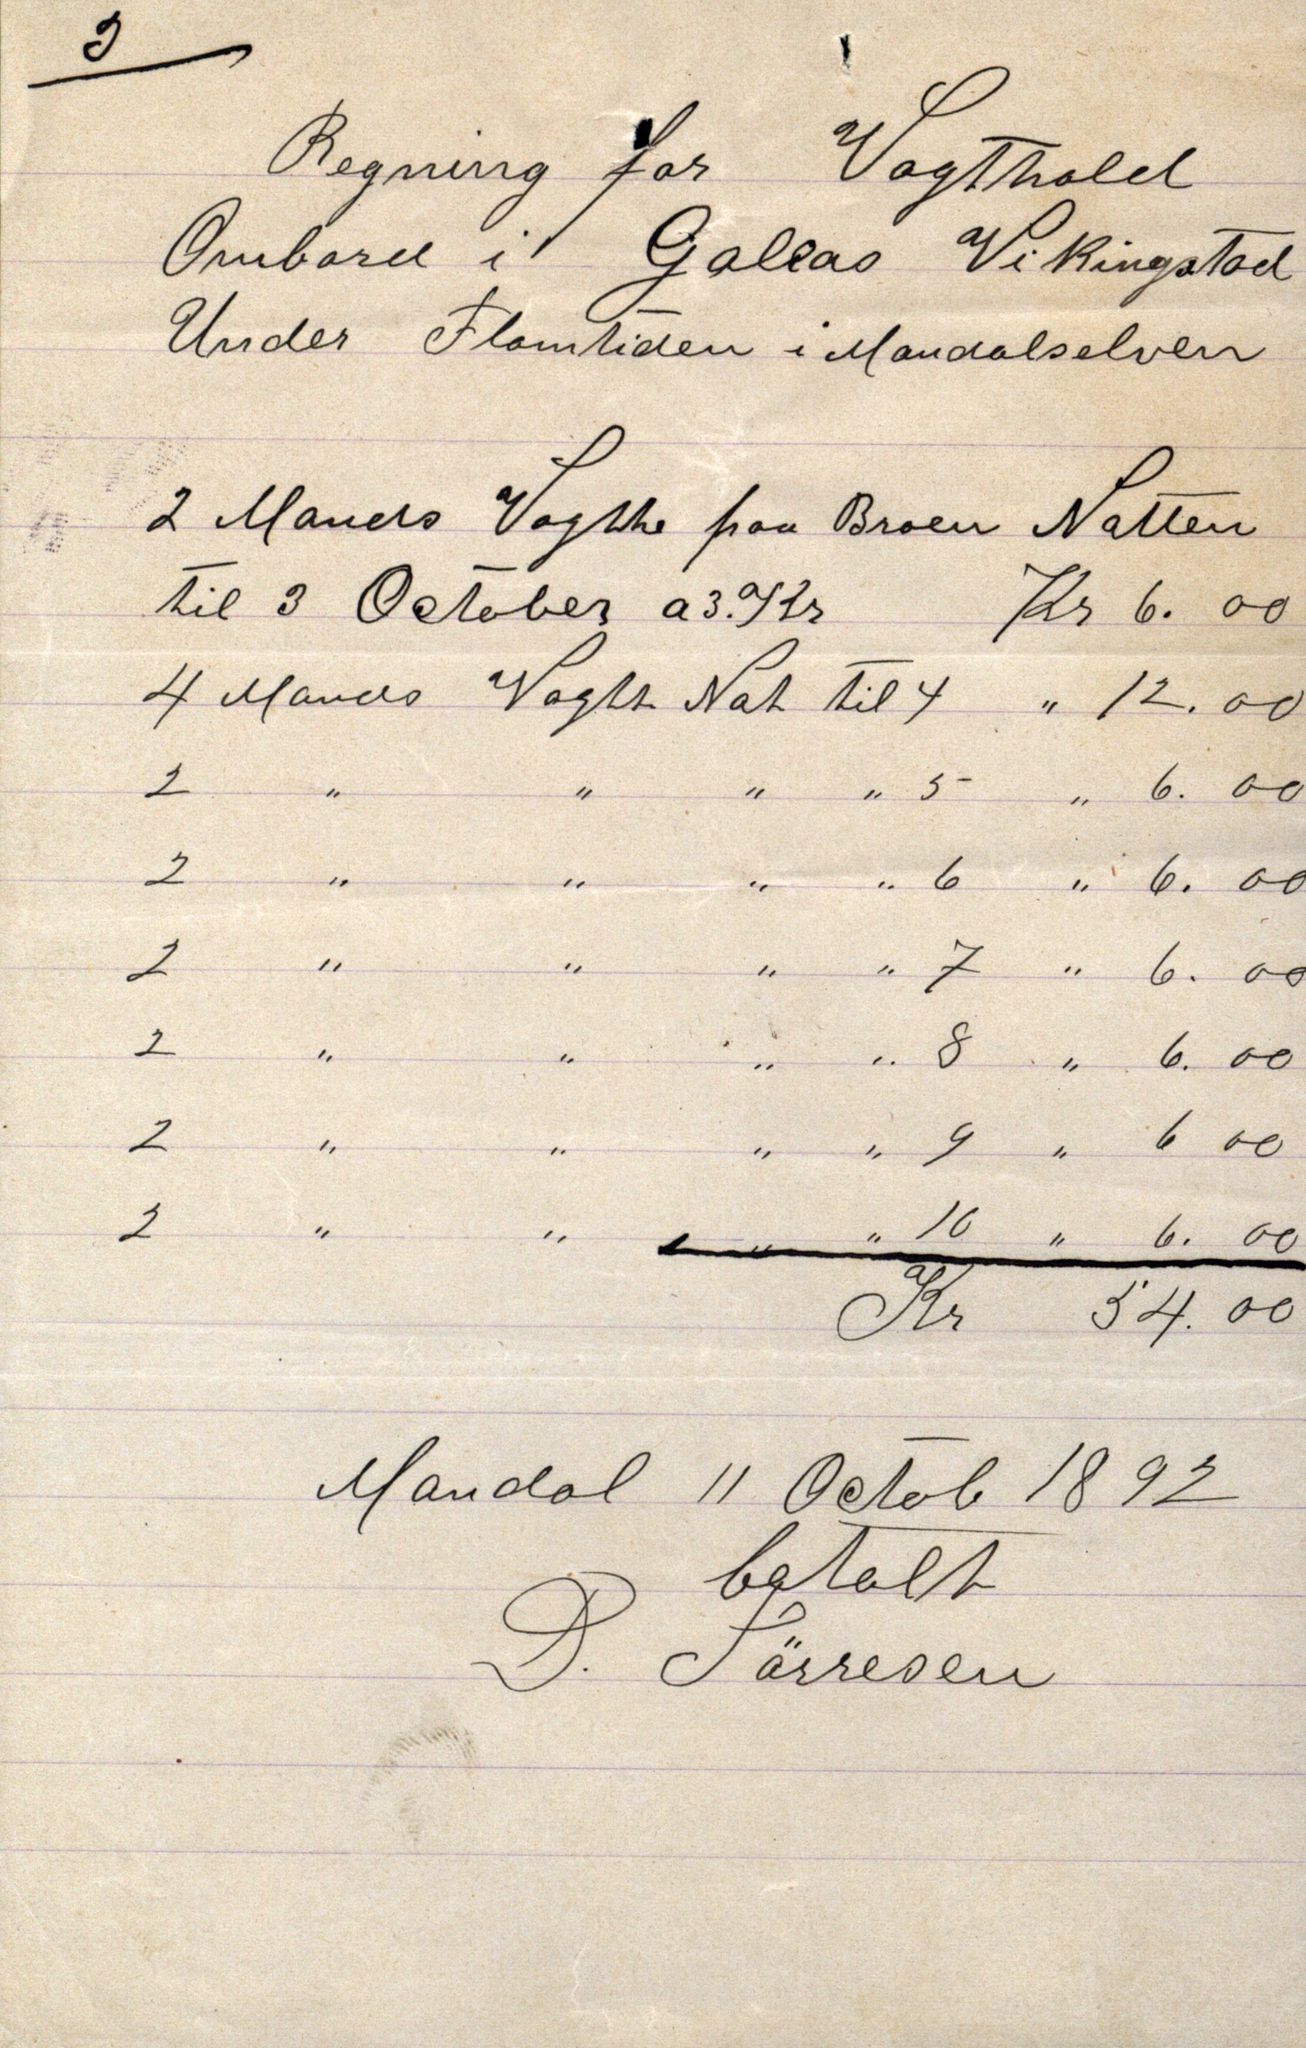 3
Regning for Vagthold
Ombord i Galeas Vikingstad
Under Flomtiden i Mandalselven
2 Mands Vagthe paa Broen Natten
til 3 October a 3. Kr Kr 6. 00
4 Mands Vagth Nat til 4 " 12. 00
2 " " " " 5 " 6. 00
2 " " " " 6 " 6. 00
2 " " " " 7 " 6. 00
2 " " " " 8 " 6. 00
2 " " " " 9 " 6 00
2 " " " " 10 " 6. 00
Kr 54. 00
Mandal 11 Octob 1892
betalt
D. Törresen